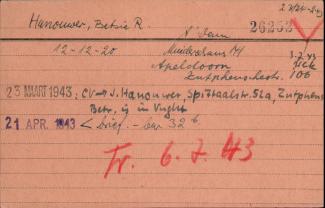 Hanouwer, Betsie R.
26252
12-12-20
A'dam
Muiderstraat 14
Apeldoorn
Zutphensestr. 106
23 MAART 1943: CV→J. Hanouwer, Spittaalstr. 52a, Zutphen
Betr. is in Vught
21 APR. 1943 < brief. - bar 32 b
Tr. 6.7.43